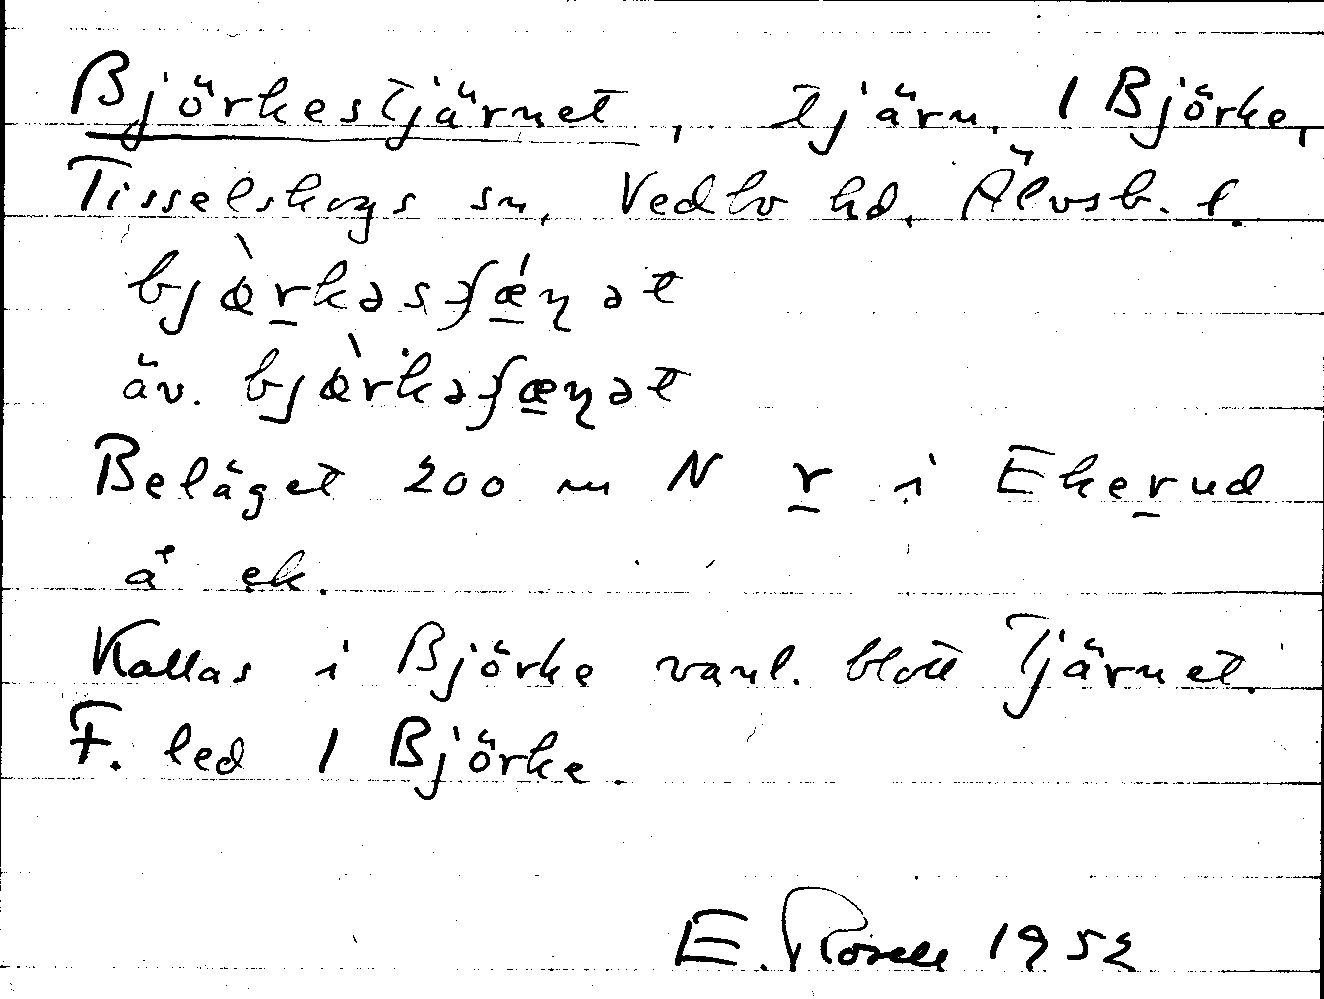 Björkestjärnet, tjärn, 1 Björke,
Tisselskogs sn, Vedbo hd, Älvsb. l.
bjæ̀rkəsʃǽɳət
äv. bjæ̀rkəʃæɳət
Beläget 200 m N r i Ekerud
å ek.
Kallas i Björke vanl. blott Tjärnet.
F. led 1 Björke.
E. Rosell 1952